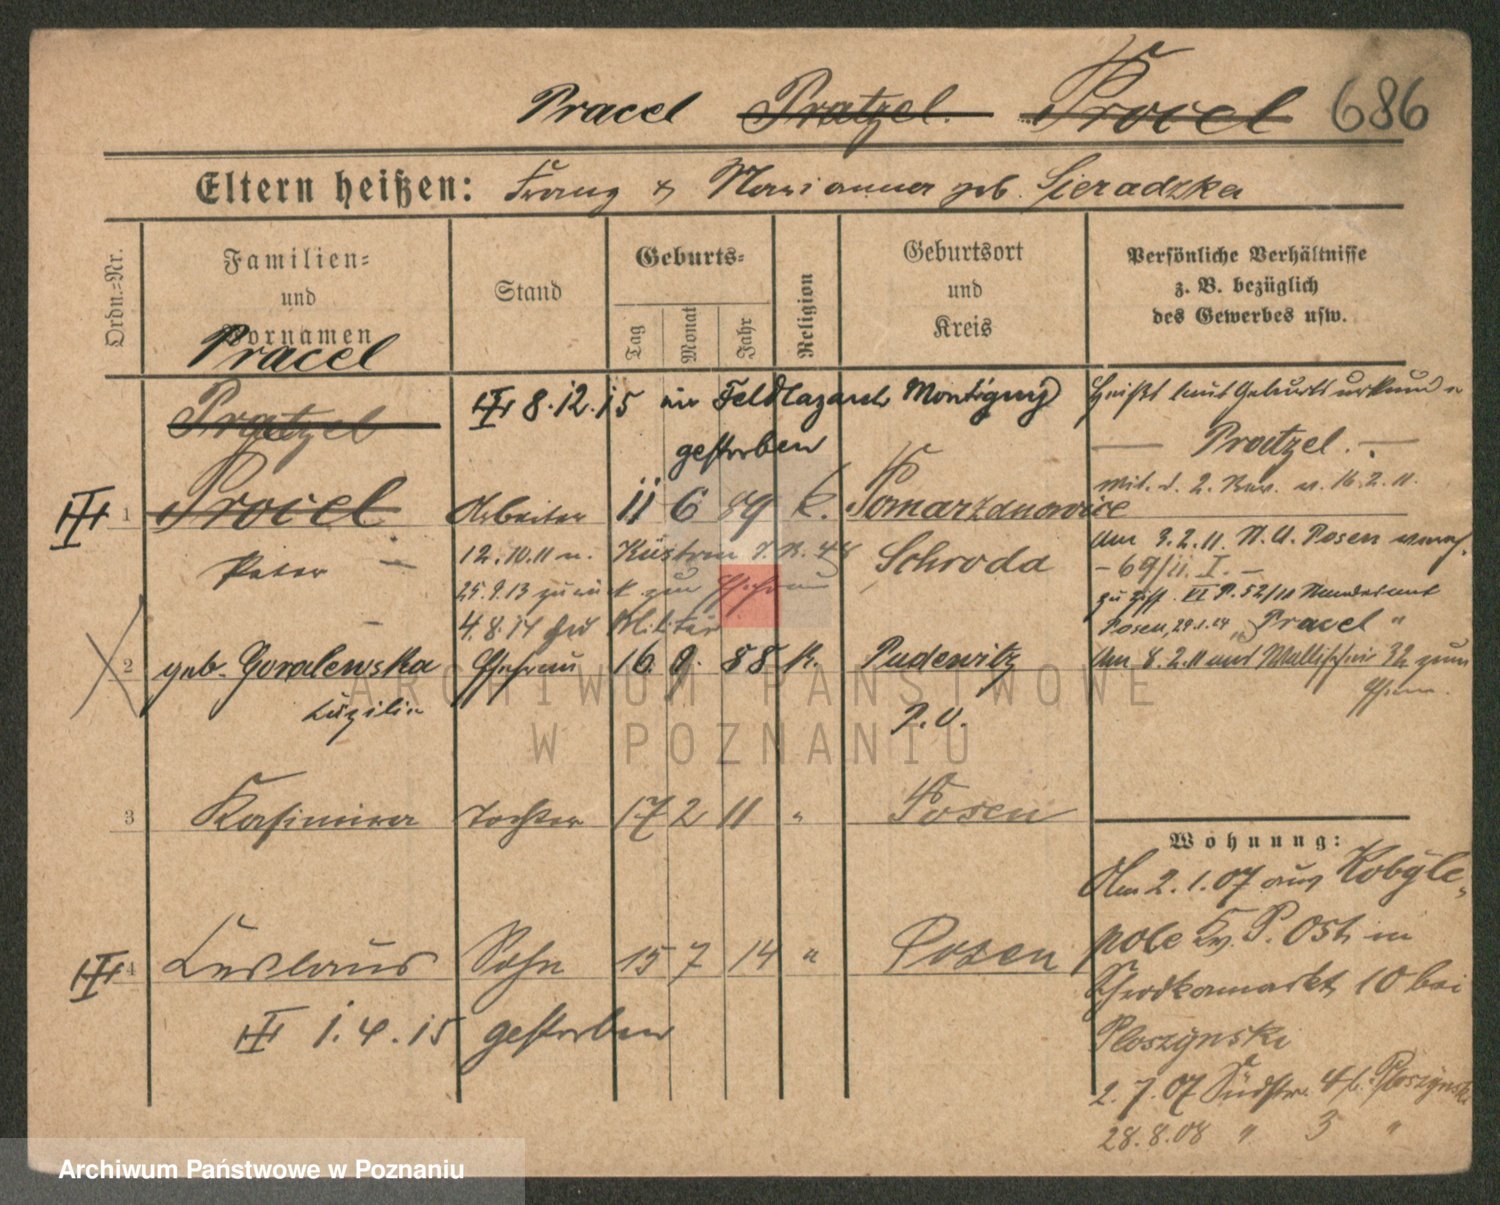 Pracel Pratzel. Procel 686
Eltern heißen: Franz & Marianna geb. Sieradzka
Ordn.-Nr.
Familien-
und
Vornamen
Stand
Geburts-
Tag
Monat
Jahr
Religion
Geburtsort
und
Kreis
Persönliche Verhältnisse
z. B. bezüglich
des Gewerbes usw.
Pracel
Pratzel
8.12.15 im Feldlazarett Montigny
gestorben
Heißt laut Geburtsurkunde
— Pratzel. —
Mit. d. 2. 16.2.11.
1 Procel Arbeiter 11 6 89 k. Pomarzanowice
Peter
12.10.11 n. Küstrin I.R. 48
Schroda
25.9.13 zurück zur Ehefrau
4.8.14 zum Militär
Am 3.2.11. Posen
— 69/11. I. —
zu Ziff. VI P. 52/10 Standesamt
Posen, 29.1.14 "Pracel"
2 geb. Goralewska Ehefrau 16. 9. 88 k. Pudewitz
Luzilia
P.O.
Am 8.2.11 aus Wallischei 32 zum
Ehem.
3 Kasimira Tochter 17 2 11 " Posen
4 Leslaus Sohn 15 7 14 " Posen
1.4.15 gestorben
Wohnung:
Am 2.1.07 aus Kobyle-
pole Kr. P. Ost in
10 bei
Ploszynski
2.7.07 Südstr. 4 b. Ploszynski
28.8.08 " 3 "
ARCHIWUM PAŃSTWOWE
W POZNANIU
Archiwum Państwowe w Poznaniu